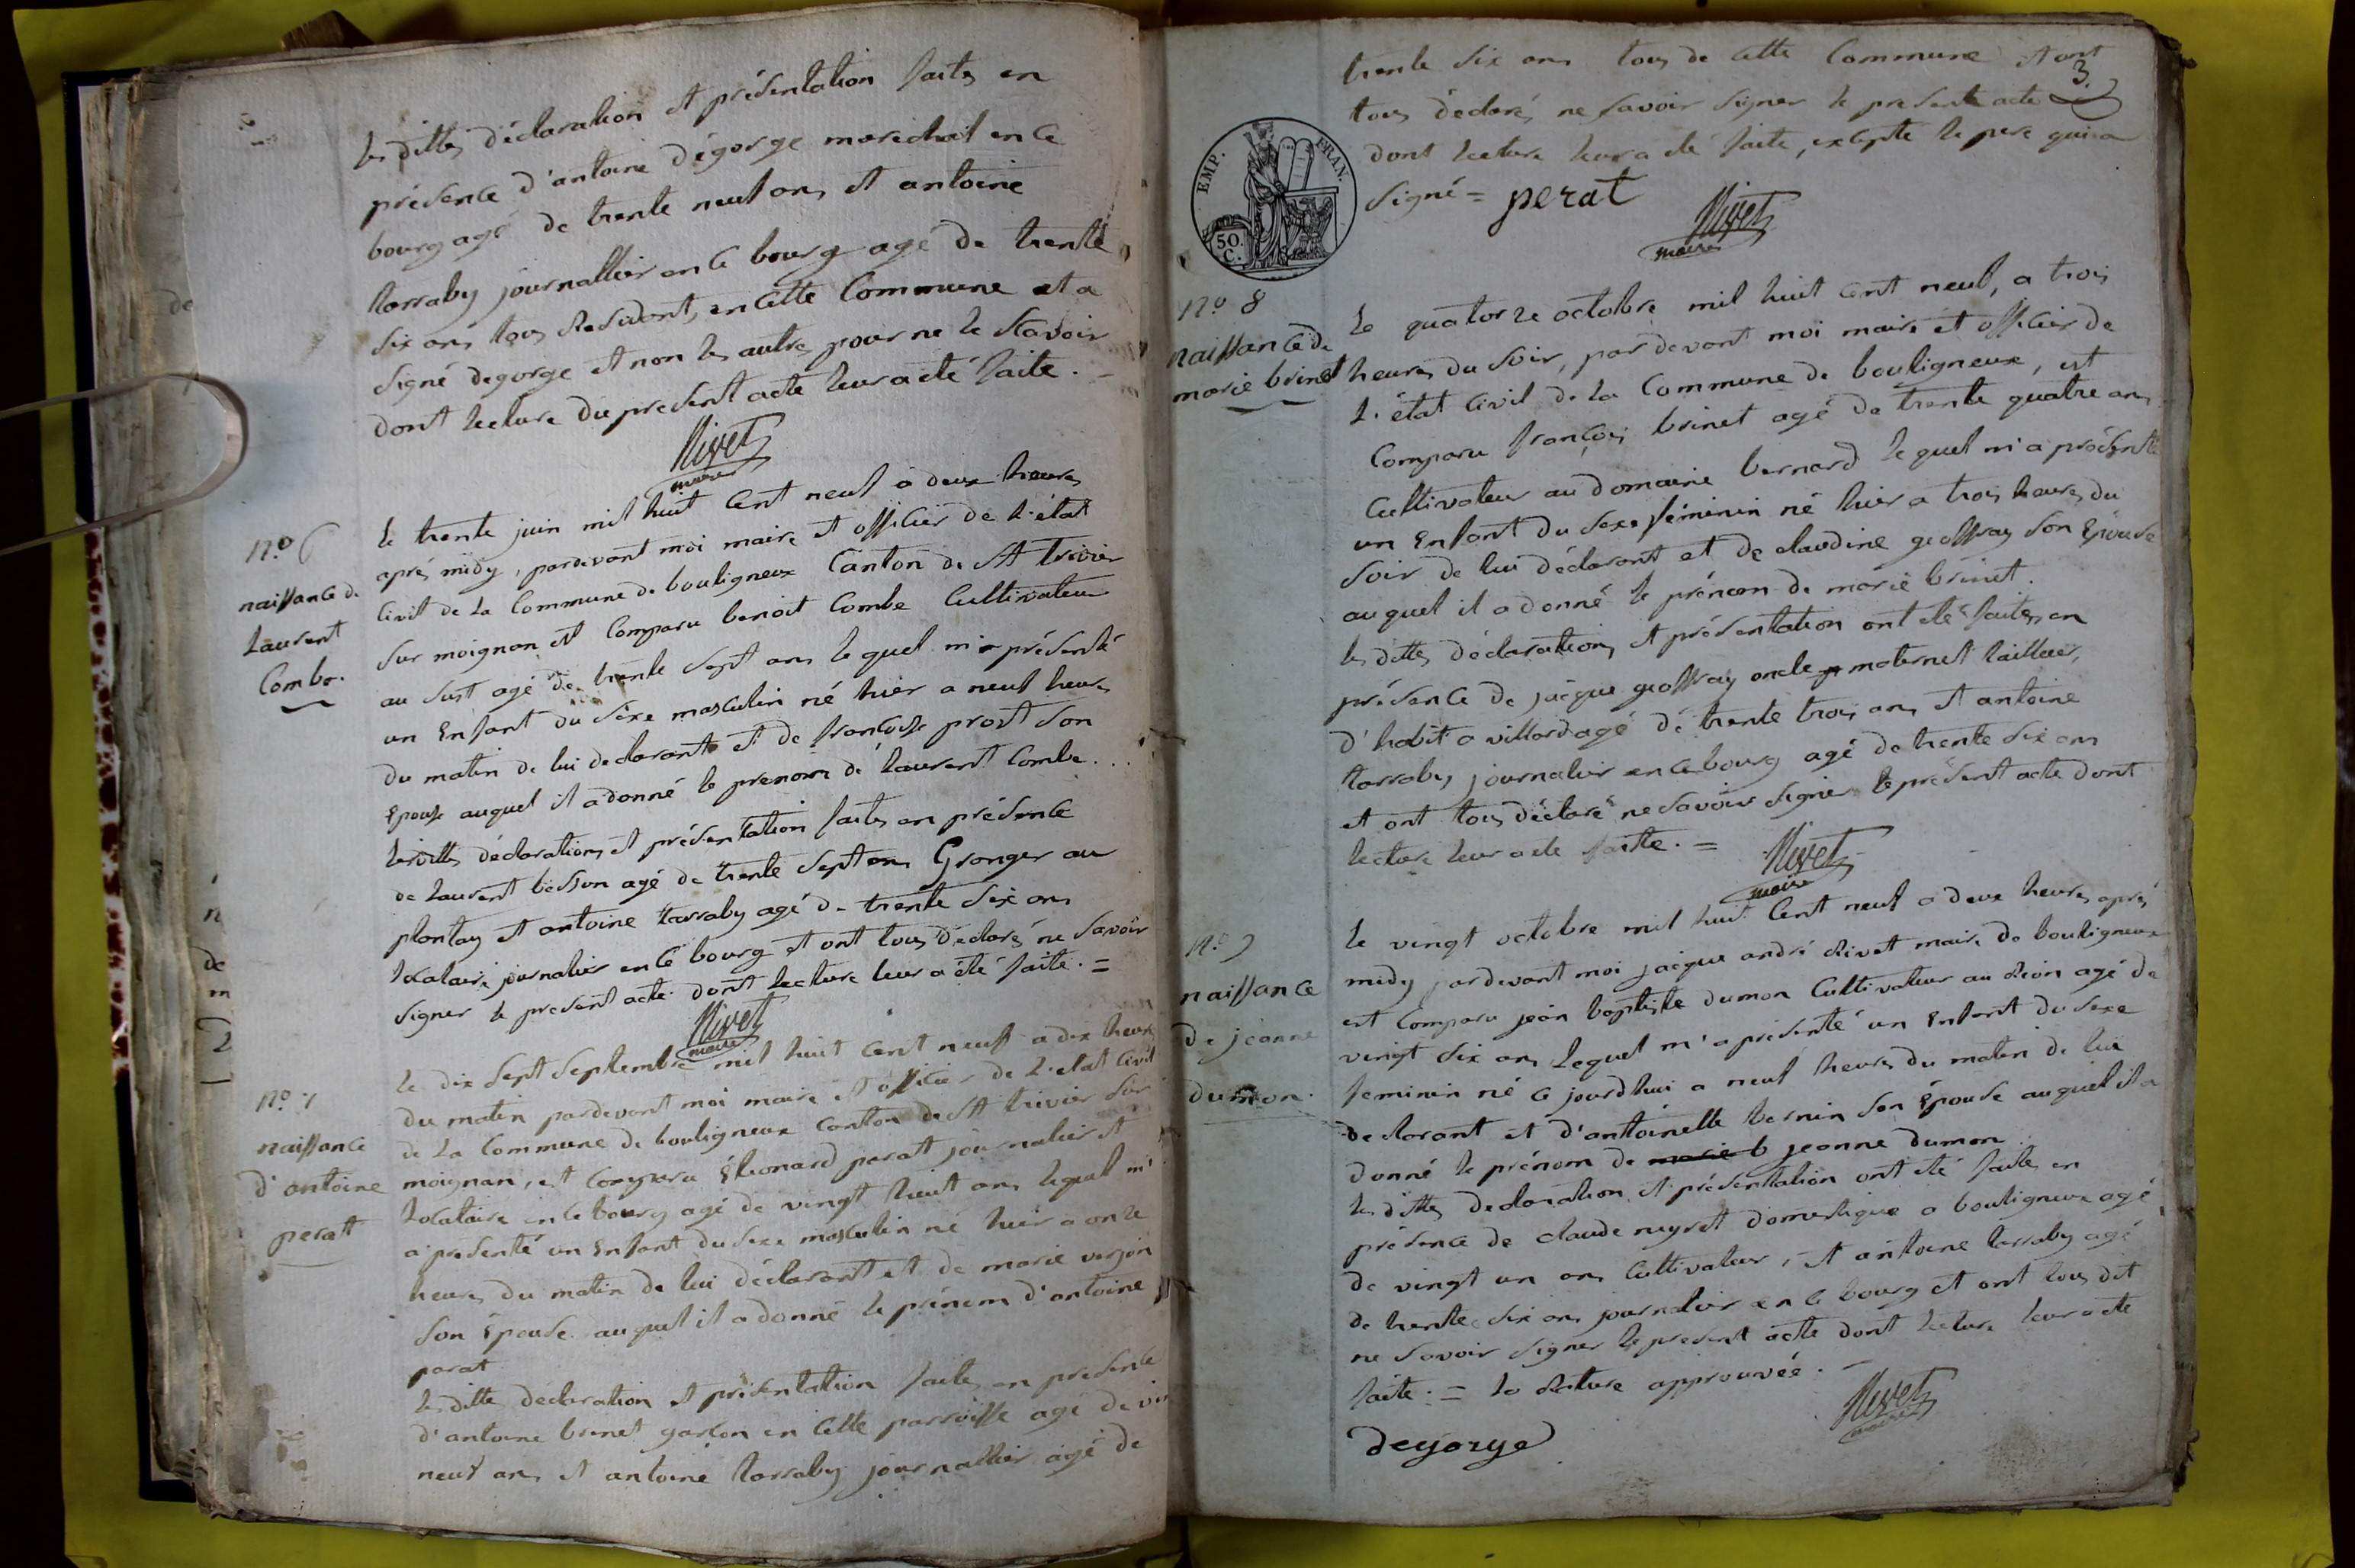 les dittes déclaration et présentation faites en
présence d'antoine dégorge marechal en ce
bourg agé de trente neuf ans et antoine
tarraby journallier en ce bourg agé de trente
six ans tous Residant, en cette Commune et a
signé degorge et non les autres pour ne le sçavoir
dont lecture du present acte leur a été faite.
Rivet
maire
n.o 6
naissance de
Laurent
Combe.
le trente juin mil huit cent neuf a deux heures
aprés midy, pardevant moi maire et officier de l'état
Civil de la Commune de bouligneux Canton de St trivier
sur moignan est Comparu benoit Combe Cultivateur
au sust agé de trente sept ans lequel m'a présenté
un Enfant du séxe masculin né hier a neuf heures
du matin de lui declarant et de françoise prost son
Epouse auquel il a donné le prenom de laurent Combe...
lesdittes déclarations et présentation faites en présence
de laurent besson agé de trente sept ans Granger au
plantay et antoine tarraby agé de trente six ans
locataire journalier en ce bourg et ont tous declaré ne savoir
signer le present acte dont lecture leur a été faite. =
Rivet
maire
n.o 7
naissance
d'antoine
perat
le dix sept septembre mil huit cent neuf a dix heures
du matin pardevant moi maire et officier de l'etat Civil
de la Commune de bouligneux Canton de St trivier sur
moignan, est Comparu Eléonard perat journalier et
locataire en ce bourg agé de vingt huit ans lequel m'
a présenté un Enfant du sexe masculin né hier a onze
heures du matin de lui déclarant et de marie verjon
son Epouse auquel il a donné le prénom d'antoine
perat
les dittes déclaration et présentation faites en présence
d'antoine brinet garçon en cette parroisse agé de vin
neuf ans et antoine tarraby journallier agé de
trente six ans tous de cette Commune et ont
3.
tous declaré, ne savoir signer le presente acte
dont lecture leur a été faite, excepte le pere qui a
signé = perat
Rivet
maire
EMP. FRAN.
50.
C.
N.o 8
naissance de
marie brinet
Le quatorze octobre mil huit cent neuf, a trois
heures du soir, pardevant moi maire et officier de
l'état Civil de la Commune de bouligneux, est
Comparu françois brinet agé de trente quatre ans
Cultivateur au domaine bernard lequel m'a présenté
un Enfant du sexe féminin né hier a trois heures du
soir de lui déclarant et de claudine geoffray son Epouse
auquel il a donné le prénom de marie brinet.
les dittes déclarations et présentation ont été faites en
présence de jacque geoffray oncle maternel tailleur,
d'habit a villard agé de trente trois ans et antoine
tarraby journalier en ce bourg agé de trente six ans
et ont tous déclaré ne savoir signer le présent acte dont
lecture leur a été faitte. =
Rivet
maire
N.o 9
naissance
de jeanne
dumon.
le vingt octobre mil huit Cent neuf a deux heures aprés
midy pardevant moi jacque andré Rivet maire de bouligneux
est Comparu jean baptiste dumon Cultivateur au Rion agé de
vingt six ans lequel m'a présenté un Enfant du sexe
feminin né ce jourd'hui a neuf heures du matin de lui
declarant et d'antoinette bernin son Epouse auquel il a
donné le prénom de marie b jeanne dumon.
les dittes declaration et présentation ont été faites en
présence de claude neyret domestique a bouligneux agé
de vingt un ans Cultivateur, et antoine tarraby agé
de trente six ans journalier en ce bourg et ont tous dit
ne savoir signer le present acte dont lecture leur a été
faite. = la Rature approuvée.
Rivet
maire
degorge